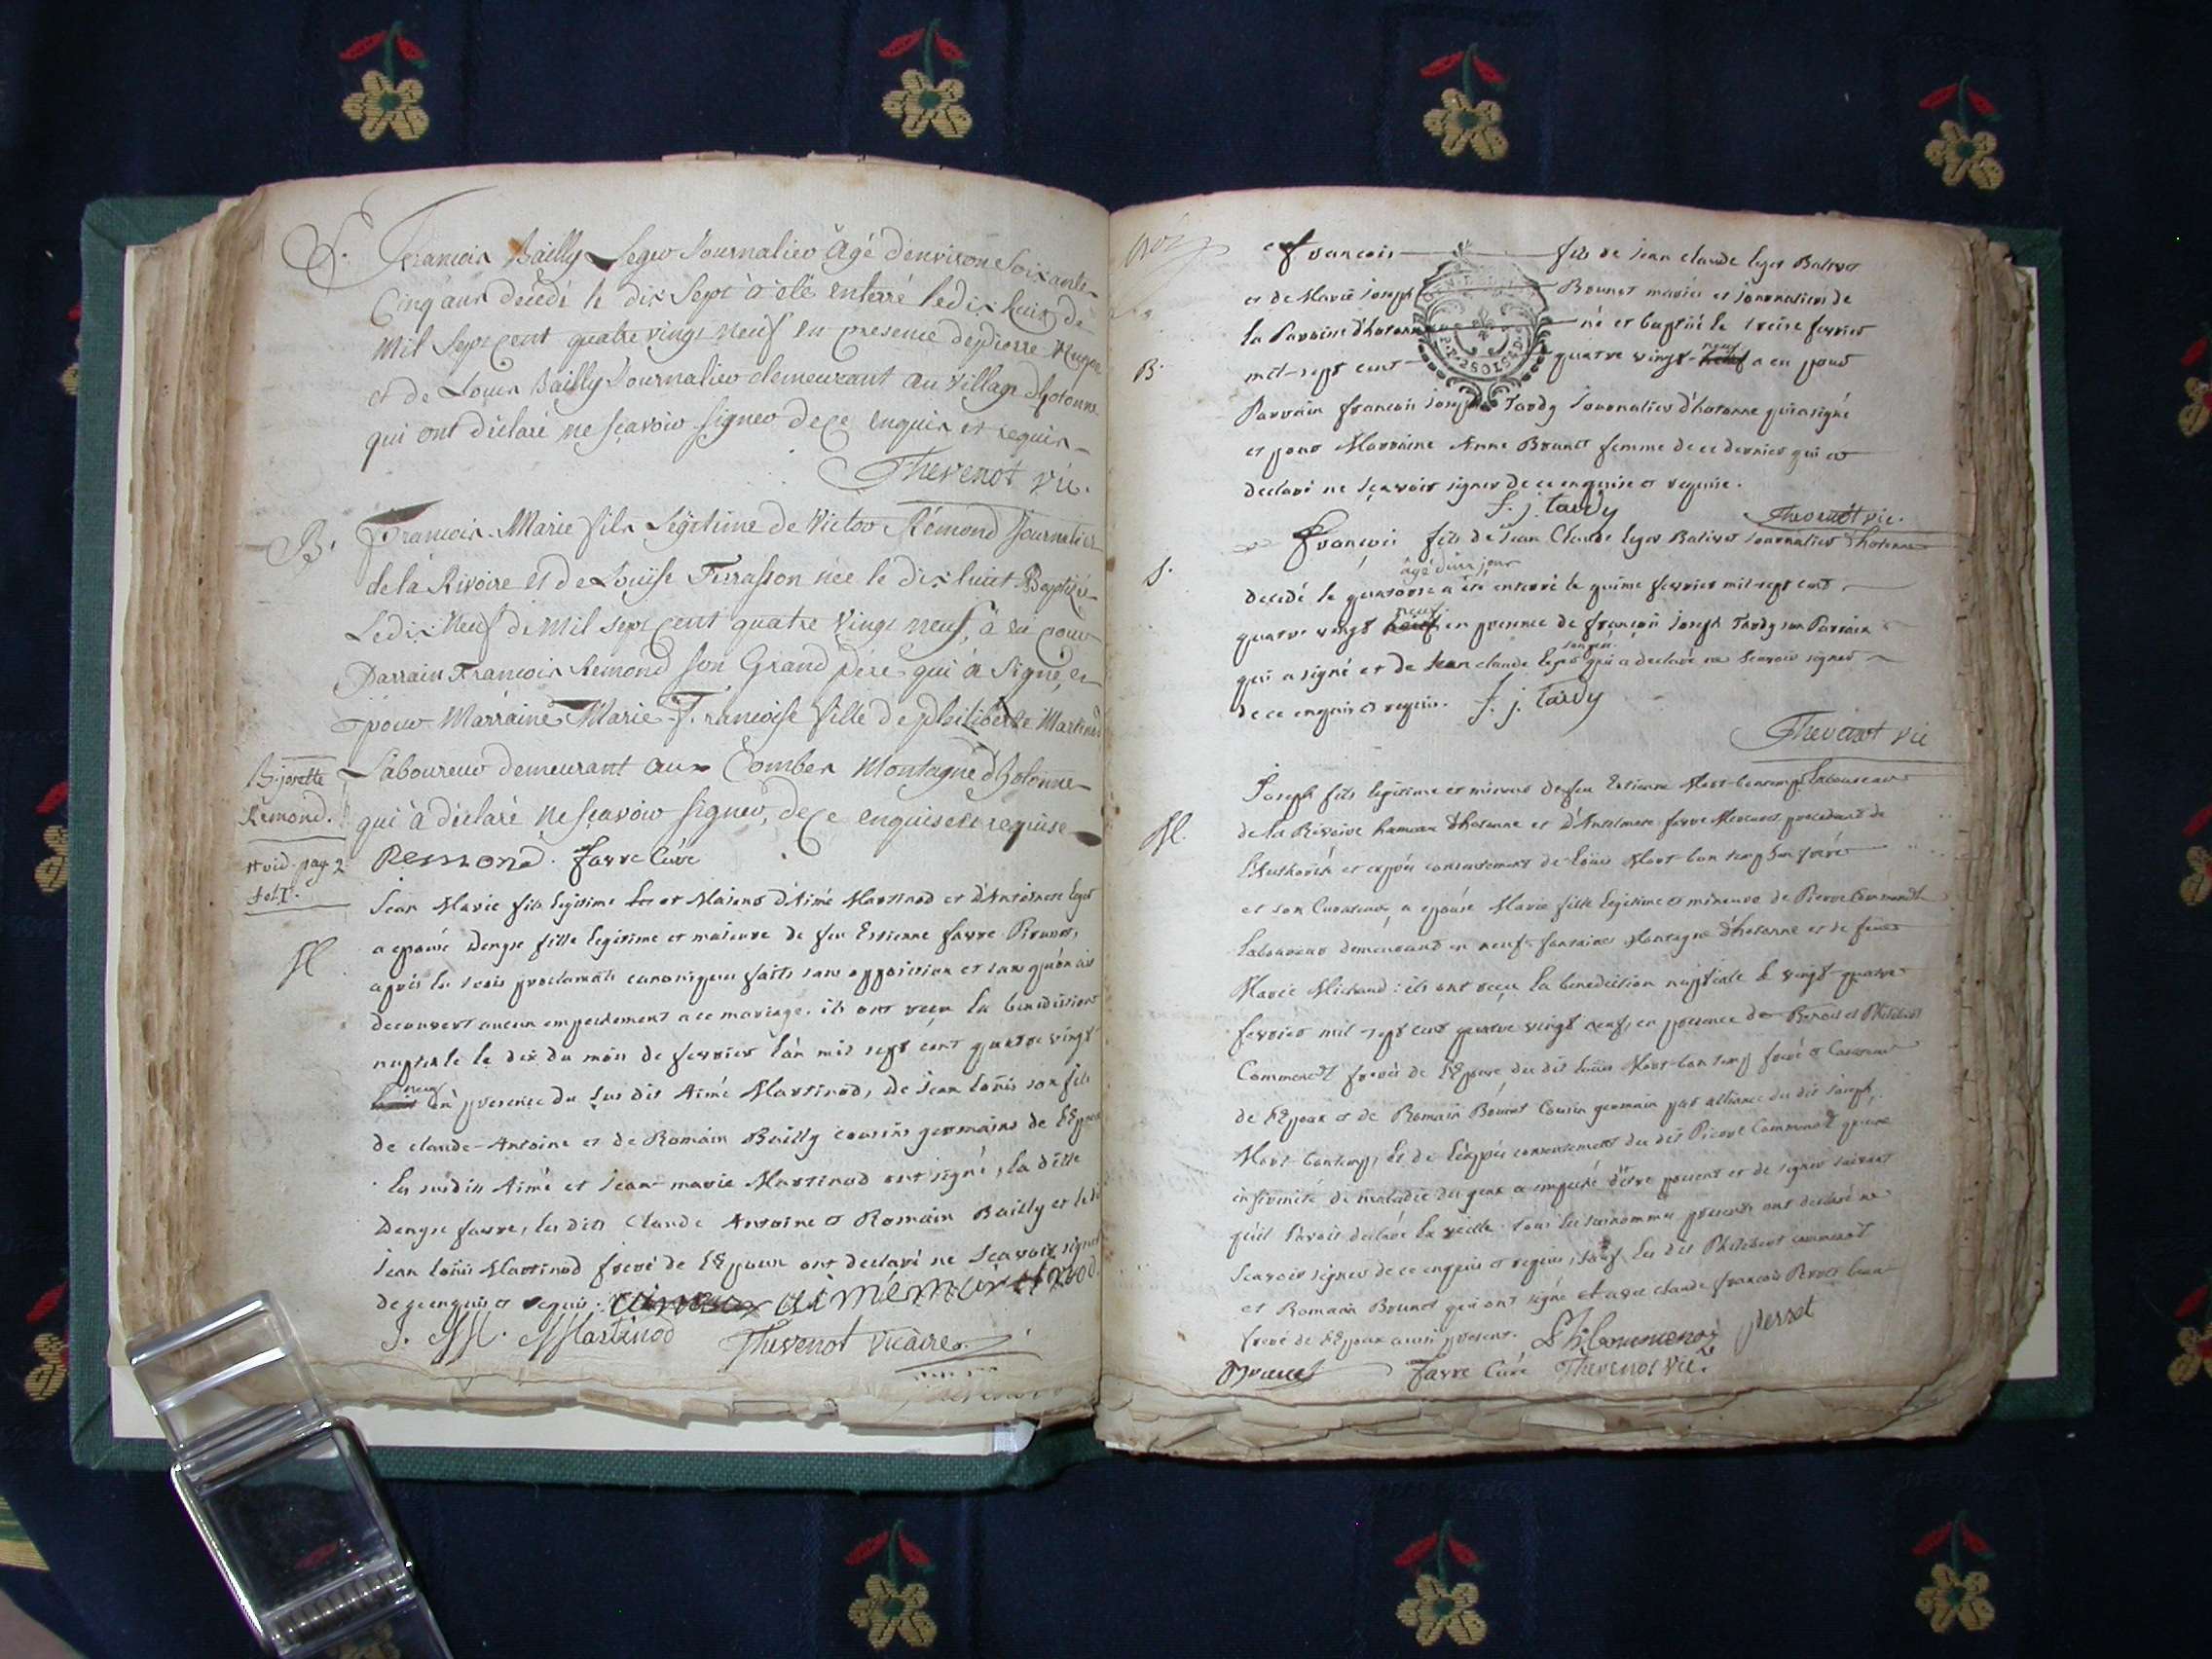 S. François Bailly Leger Journalier âgé d'environ Soixante
Cinq ans décédé le dix Sept à été enterré le dix huit de
Mil Sept cent quatre vingt neuf en présence de pierre
et de Louis Bailly Journalier demeurant au village d'hotonne
qui ont déclaré ne sçavoir signer de ce enquis et requis
Thevenot Vic.
B. François Marie fils Légitime de Victor Rémond Journalier
de la Rivoire et de Louïse Ferrasson née le dix huit Baptizé
Le dix Neuf de Mil sept cent quatre Vingt neuf, à eu pour
Parrain François Remond son Grand père qui à Signé, et
pour Marraine Marie Françoise fille de philiberte Martinod
B. jorette
Rémond.
Laboureur demeurant aux Combes Montagne d'hotonne
qui à déclaré ne sçavoir signer, de ce enquise et requise
# vid. pag. 2
fol 1.
Remond. favre Curé
Jean Marie fils legitime et Majeur d'Aimé Martinod et d'Antoinette Leger
M. a epousé Denyse fille legitime et majeure de feu Estienne favre Brunet,
après les trois proclamats canoniques faits sans opposition et sans qu'on ait
decouvert aucun empechement a ce mariage. ils ont reçu la benediction
nuptiale le dix du mois de fevrier l'an mil sept cent quatre vingt
neuf en presence du sus dit Aimé Martinod, de Jean loüis son fils
de claude-Antoine et de Romain Bailly cousins germains de l'Epouse
Les susdits Aimé et Jean-marie Martinod ont signé, la ditte
Denyse favre, les dits Claude Antoine et Romain Bailly et le dit
Jean loüis Martinod frere de l'Epoux ont declaré ne scavoir signer
de ce enquis et requis. aimé martinod
J. M. Martinod Thevenot Vicaire
françois fils de Jean claude leger Balivet
et de Marie Joseph Brunet mariés et journaliers de
la Paroisse d'hotonne né et baptisé le treise fevrier
B. mil-sept cent quatre vingt-neuf a eu pour
Parrain françois Joseph Tardy Journalier d'hotonne qui a signé
et pour Marraine Anne Brunet femme de ce dernier qui a
declaré ne sçavoir signer de ce enquise et requise.
f. j. tardy Thevenot vic.
françois fils de Jean Claude leger Balivet Journalier d'hotonne
âgé d'un jour
S. decedé le quatorse a été enterré le quinse fevrier mil-sept cent
quatre vingt neuf en presence de françois Joseph Tardy son Parrain
qui a signé et de Jean claude leger son pere qui a declaré ne scavoir signer
de ce enquis et requis. f. j. tardy
Thevenot vic
Joseph fils legitime et mineur de feu Estienne Mort-bontemps Laboureur
M. de la Rivoire hameau d'hotonne et d'Antelmette favre procedant de
L'Authorité et exprès consentement de loüis Mort-bon temps son frere
et son Curateur, a epousé Marie fille legitime et mineure de Pierre Commenoz
Laboureur demeurant en neuf-fontaines Montagne d'hotonne et de feue
Marie Michaud: ils ont reçu la benediction nuptiale le vingt-quatre
fevrier mil-sept cent quatre vingt neuf, en presence de Benoit et Philibert
Commenoz freres de l'Epouse du dit loüis Mort-bon temps frere et Curateur
de l'Epoux et de Romain Brunet Cousin germain par alliance du dit Joseph
Mort-bontemps, et de l'exprès consentement du dit Pierre Commenoz qu'une
infirmité de maladie des yeux a empeché d'être present et de signer suivant
qu'il l'avoit declaré la veille. tous les surnommés presents ont declaré ne
scavoir signer de ce enquis et requis, sauf les dits Philibert commenoz
et Romain Brunet qui ont signé et avec claude françois Perret beau
frere de l'Epoux aussi present. Ph. Commenoz perret
Brunet favre Curé Thevenot Vic.